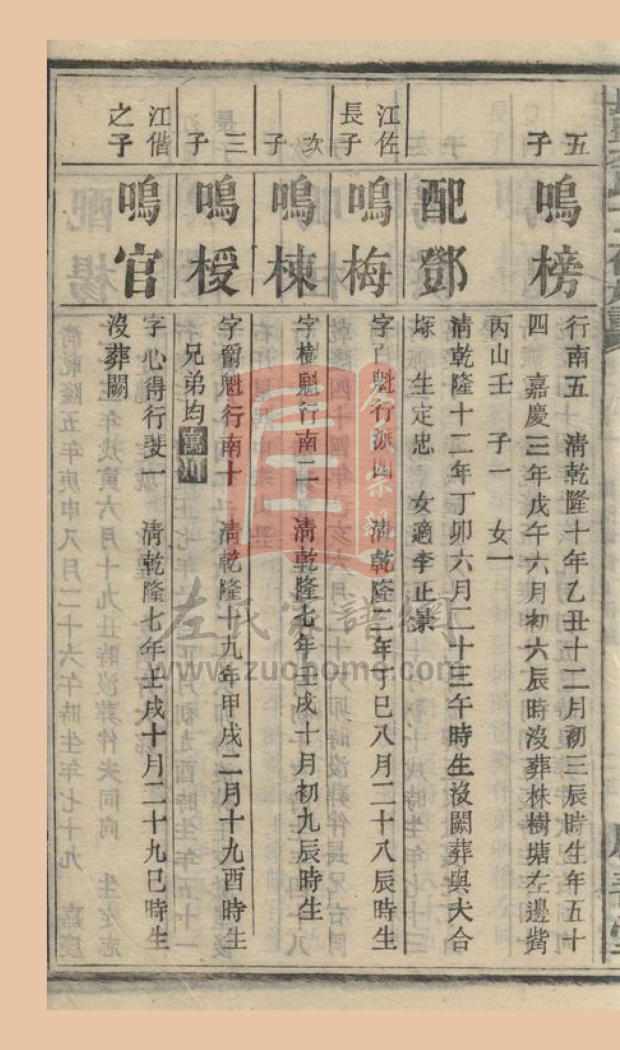 五子
鳴榜
行南五 清乾隆十年乙丑十二月初三辰時生年五十
四 嘉慶三年戊午六月初六辰時沒葬株樹塘左邊嘴
丙山壬 子一 女一
配鄧
清乾隆十二年丁卯六月二十三午時生沒闕葬與夫合
塚 生定忠 女適李正
江佐長子
鳴梅
清乾隆二年丁巳八月二十八辰時生
次子
鳴棟
字樹魁行南二 清乾隆七年壬戌十月初九辰時生
三子
鳴椶
字爾魁行南十 清乾隆十九年甲戌二月十九酉時生
兄弟均寓川
江偕之子
鳴官
字心得行斐一 清乾隆七年壬戌十月二十九巳時生
沒葬闕
左氏家譜網
www.zuohome.com